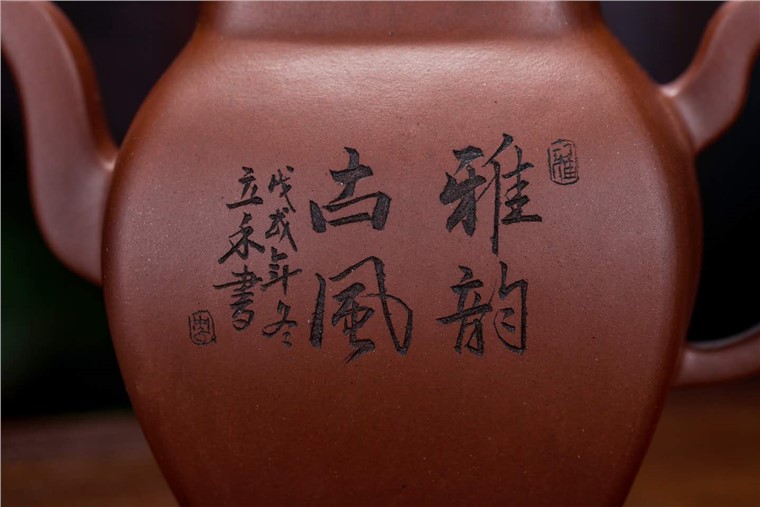 雅韵
古風
戊戌年冬
立永書